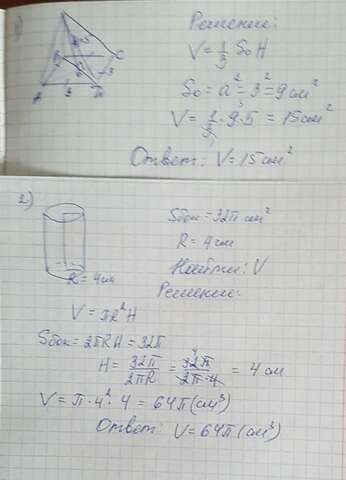 1)
Решение:
V = 1/3 S₀ H
S₀ = a² = 3² = 9 см²
V = 1/3 · 9 · 5 = 15 см²
Ответ: V = 15 см²
B
C
3
A
3
2)
Sбок = 32π см²
R = 4 см
Найти: V
R = 4 см
Решение:
V = πR²H
Sбок = 2πRH = 32π
H = 32π/2πR = 32π/2π·4 = 4 см
V = π · 4² · 4 = 64π (см³)
Ответ: V = 64π (см³)